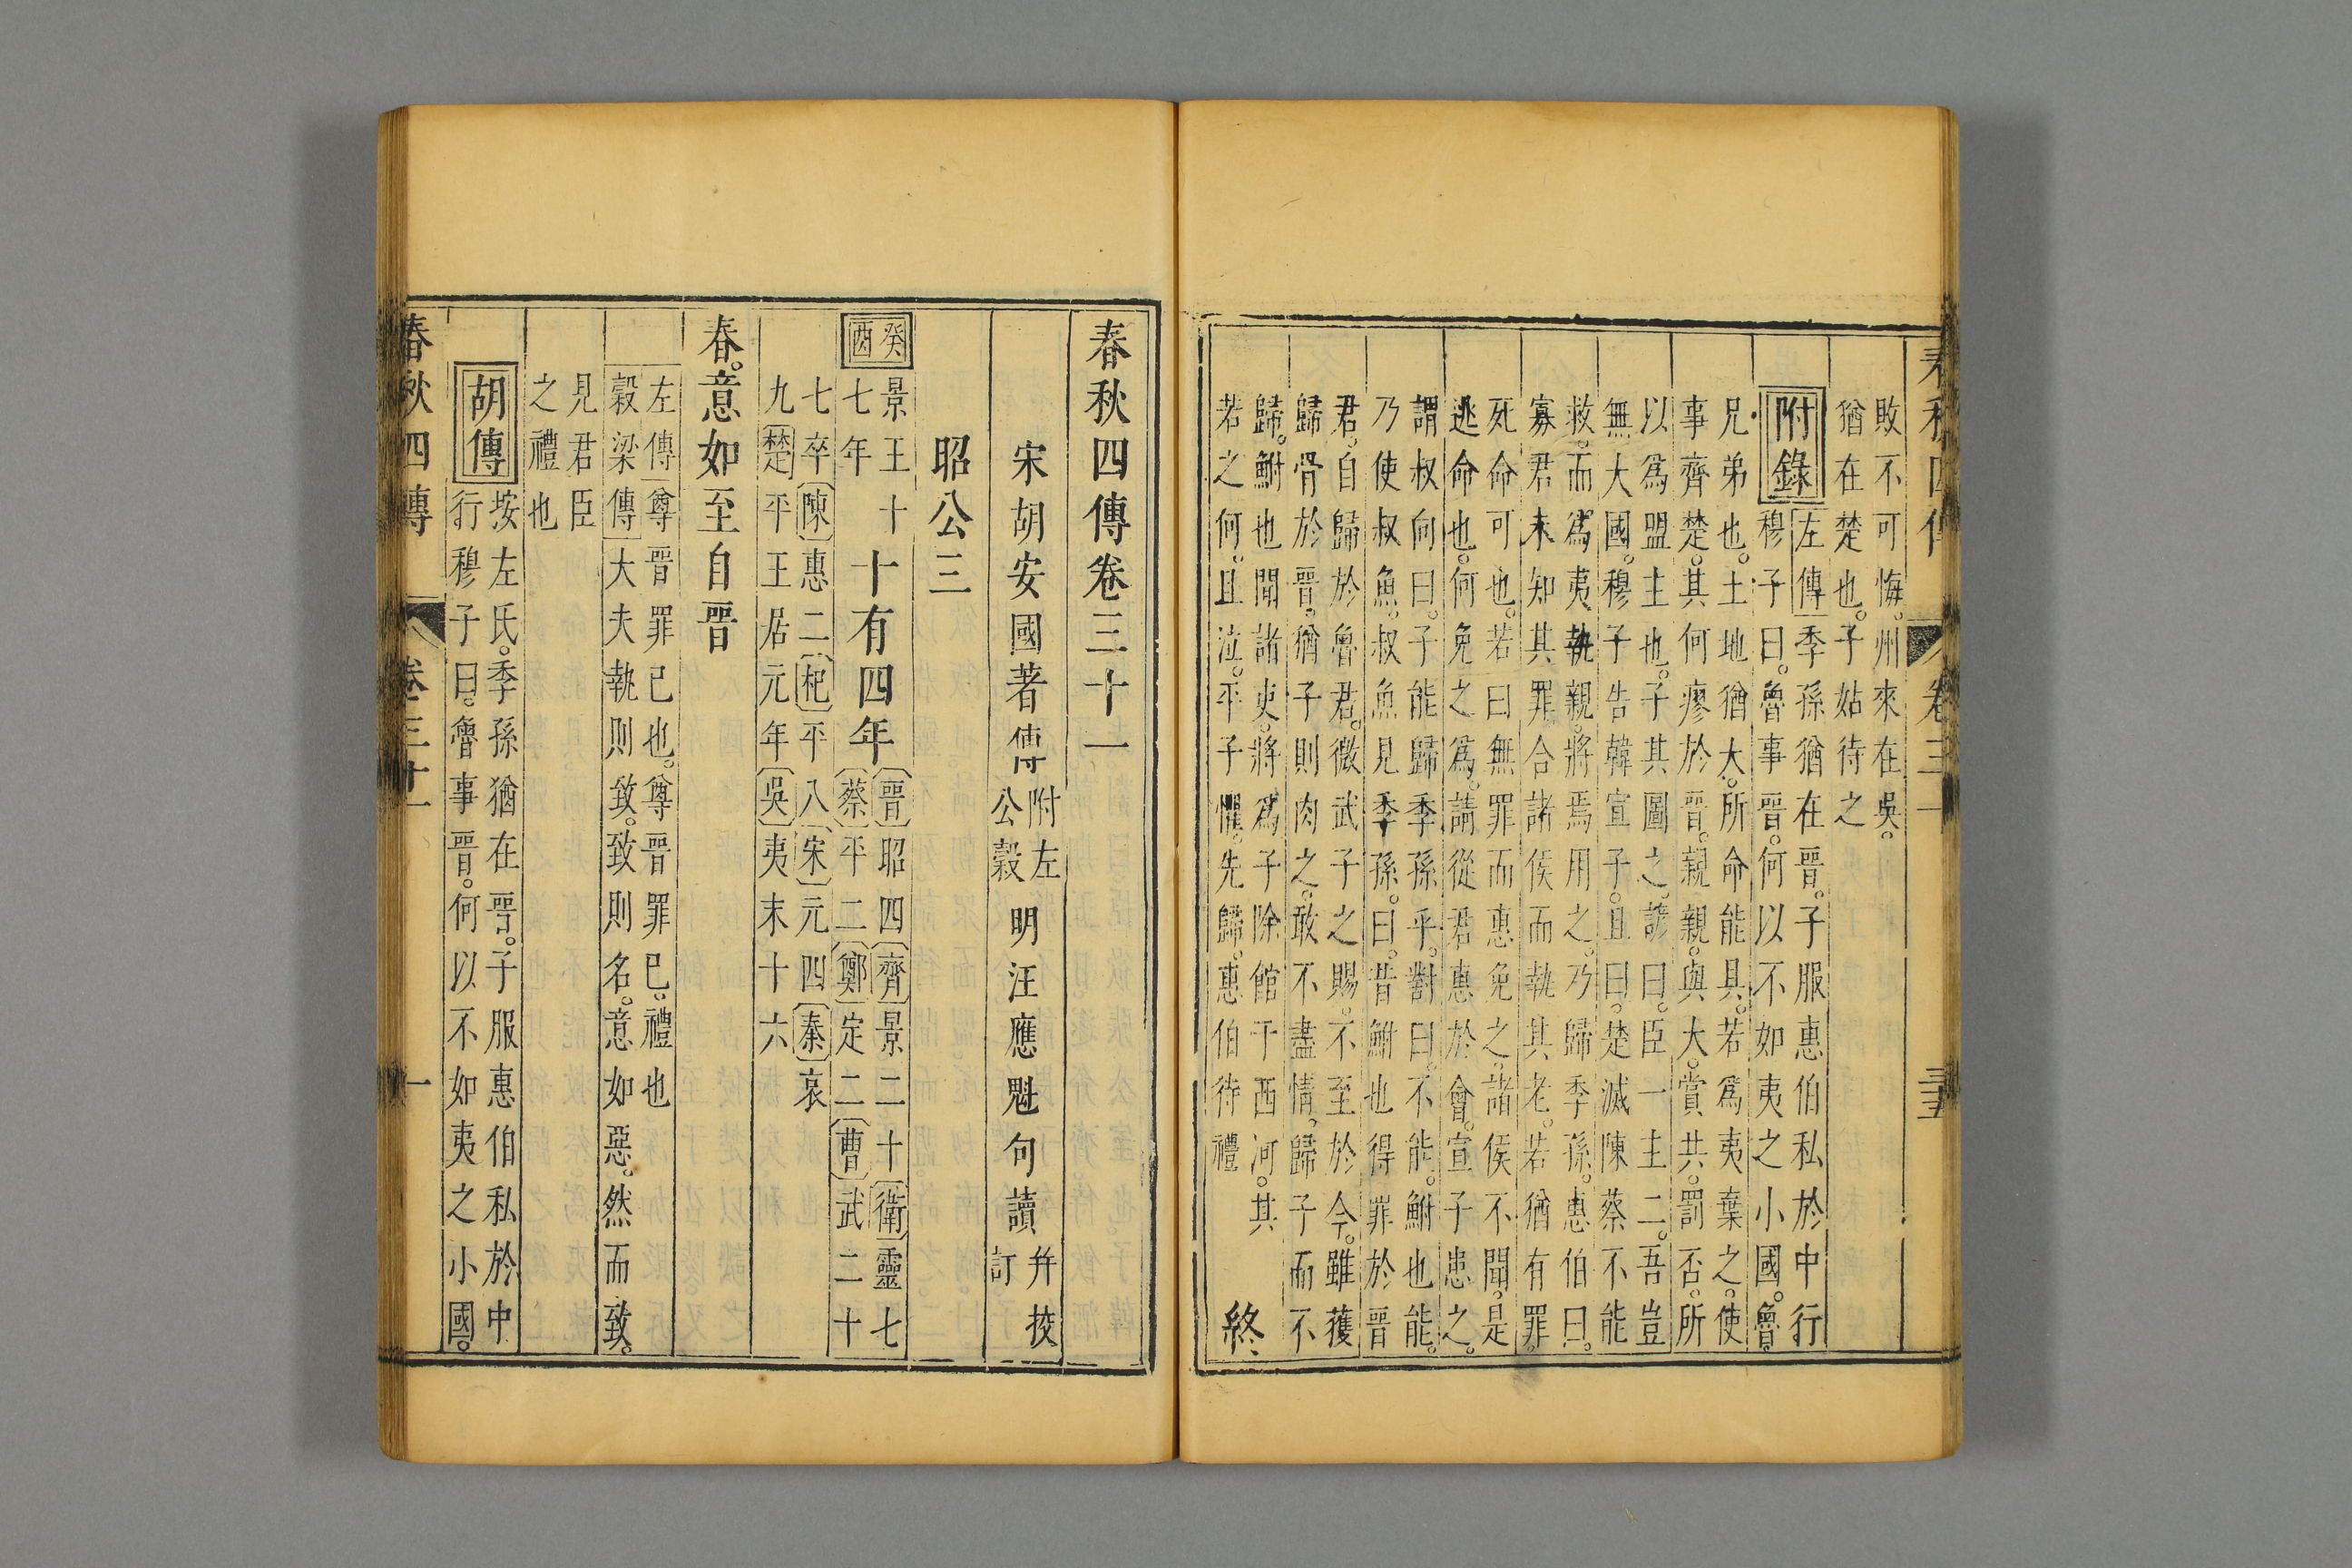 春秋四傳 卷三十 三五
敗不可悔。州來在吳。
猶在楚也。子姑待之
附錄
左傳季孫猶在晉。子服惠伯私於中行
穆子曰。魯事晉。何以不如夷之小國。魯。
兄弟也。土地猶大。所命能具。若爲夷棄之。使
事齊楚。其何瘳於晉。親親。與大。賞共。罰否。所
以爲盟主也。子其圖之。諺曰。臣一主二。吾豈
無大國。穆子告韓宣子。且曰。楚滅陳蔡不能
救。而爲夷執親。將焉用之。乃歸季孫。惠伯曰。
寡君未知其罪合諸侯而執其老。若猶有罪。
死命可也。若曰無罪而惠免之。諸侯不聞。是
逃命也。何免之爲。請從君惠於會。宣子患之。
謂叔向曰。子能歸季孫乎。對曰。不能。鮒也能。
乃使叔魚。叔魚見季孫。曰。昔鮒也得罪於晉
君。自歸於魯君。微武子之賜。不至於今。雖獲
歸骨於晉。猶子則肉之。敢不盡情。歸子而不
歸。鮒也聞諸吏。將爲子除館于西河。其
若之何。且泣。平子懼。先歸。惠伯待禮
終
春秋四傳卷三十一
宋胡安國著傳 附左公穀 明汪應魁句讀 并挍訂
昭公三
癸酉
景王十七年
十有四年
晉昭四齊景二十衛靈七
蔡平二鄭定二曹武二十
七卒陳惠二杞平八宋元四秦哀
九楚平王居元年吳夷末十六
春。意如至自晉
左傳尊晉罪已也。尊晉罪已。禮也
穀梁傳大夫執則致。致則名。意如惡。然而致。
見君臣
之禮也
胡傳
按左氏。季孫猶在晉。子服惠伯私於中
行穆子曰。魯事晉。何以不如夷之小國。
春秋四傳 卷三十一 一